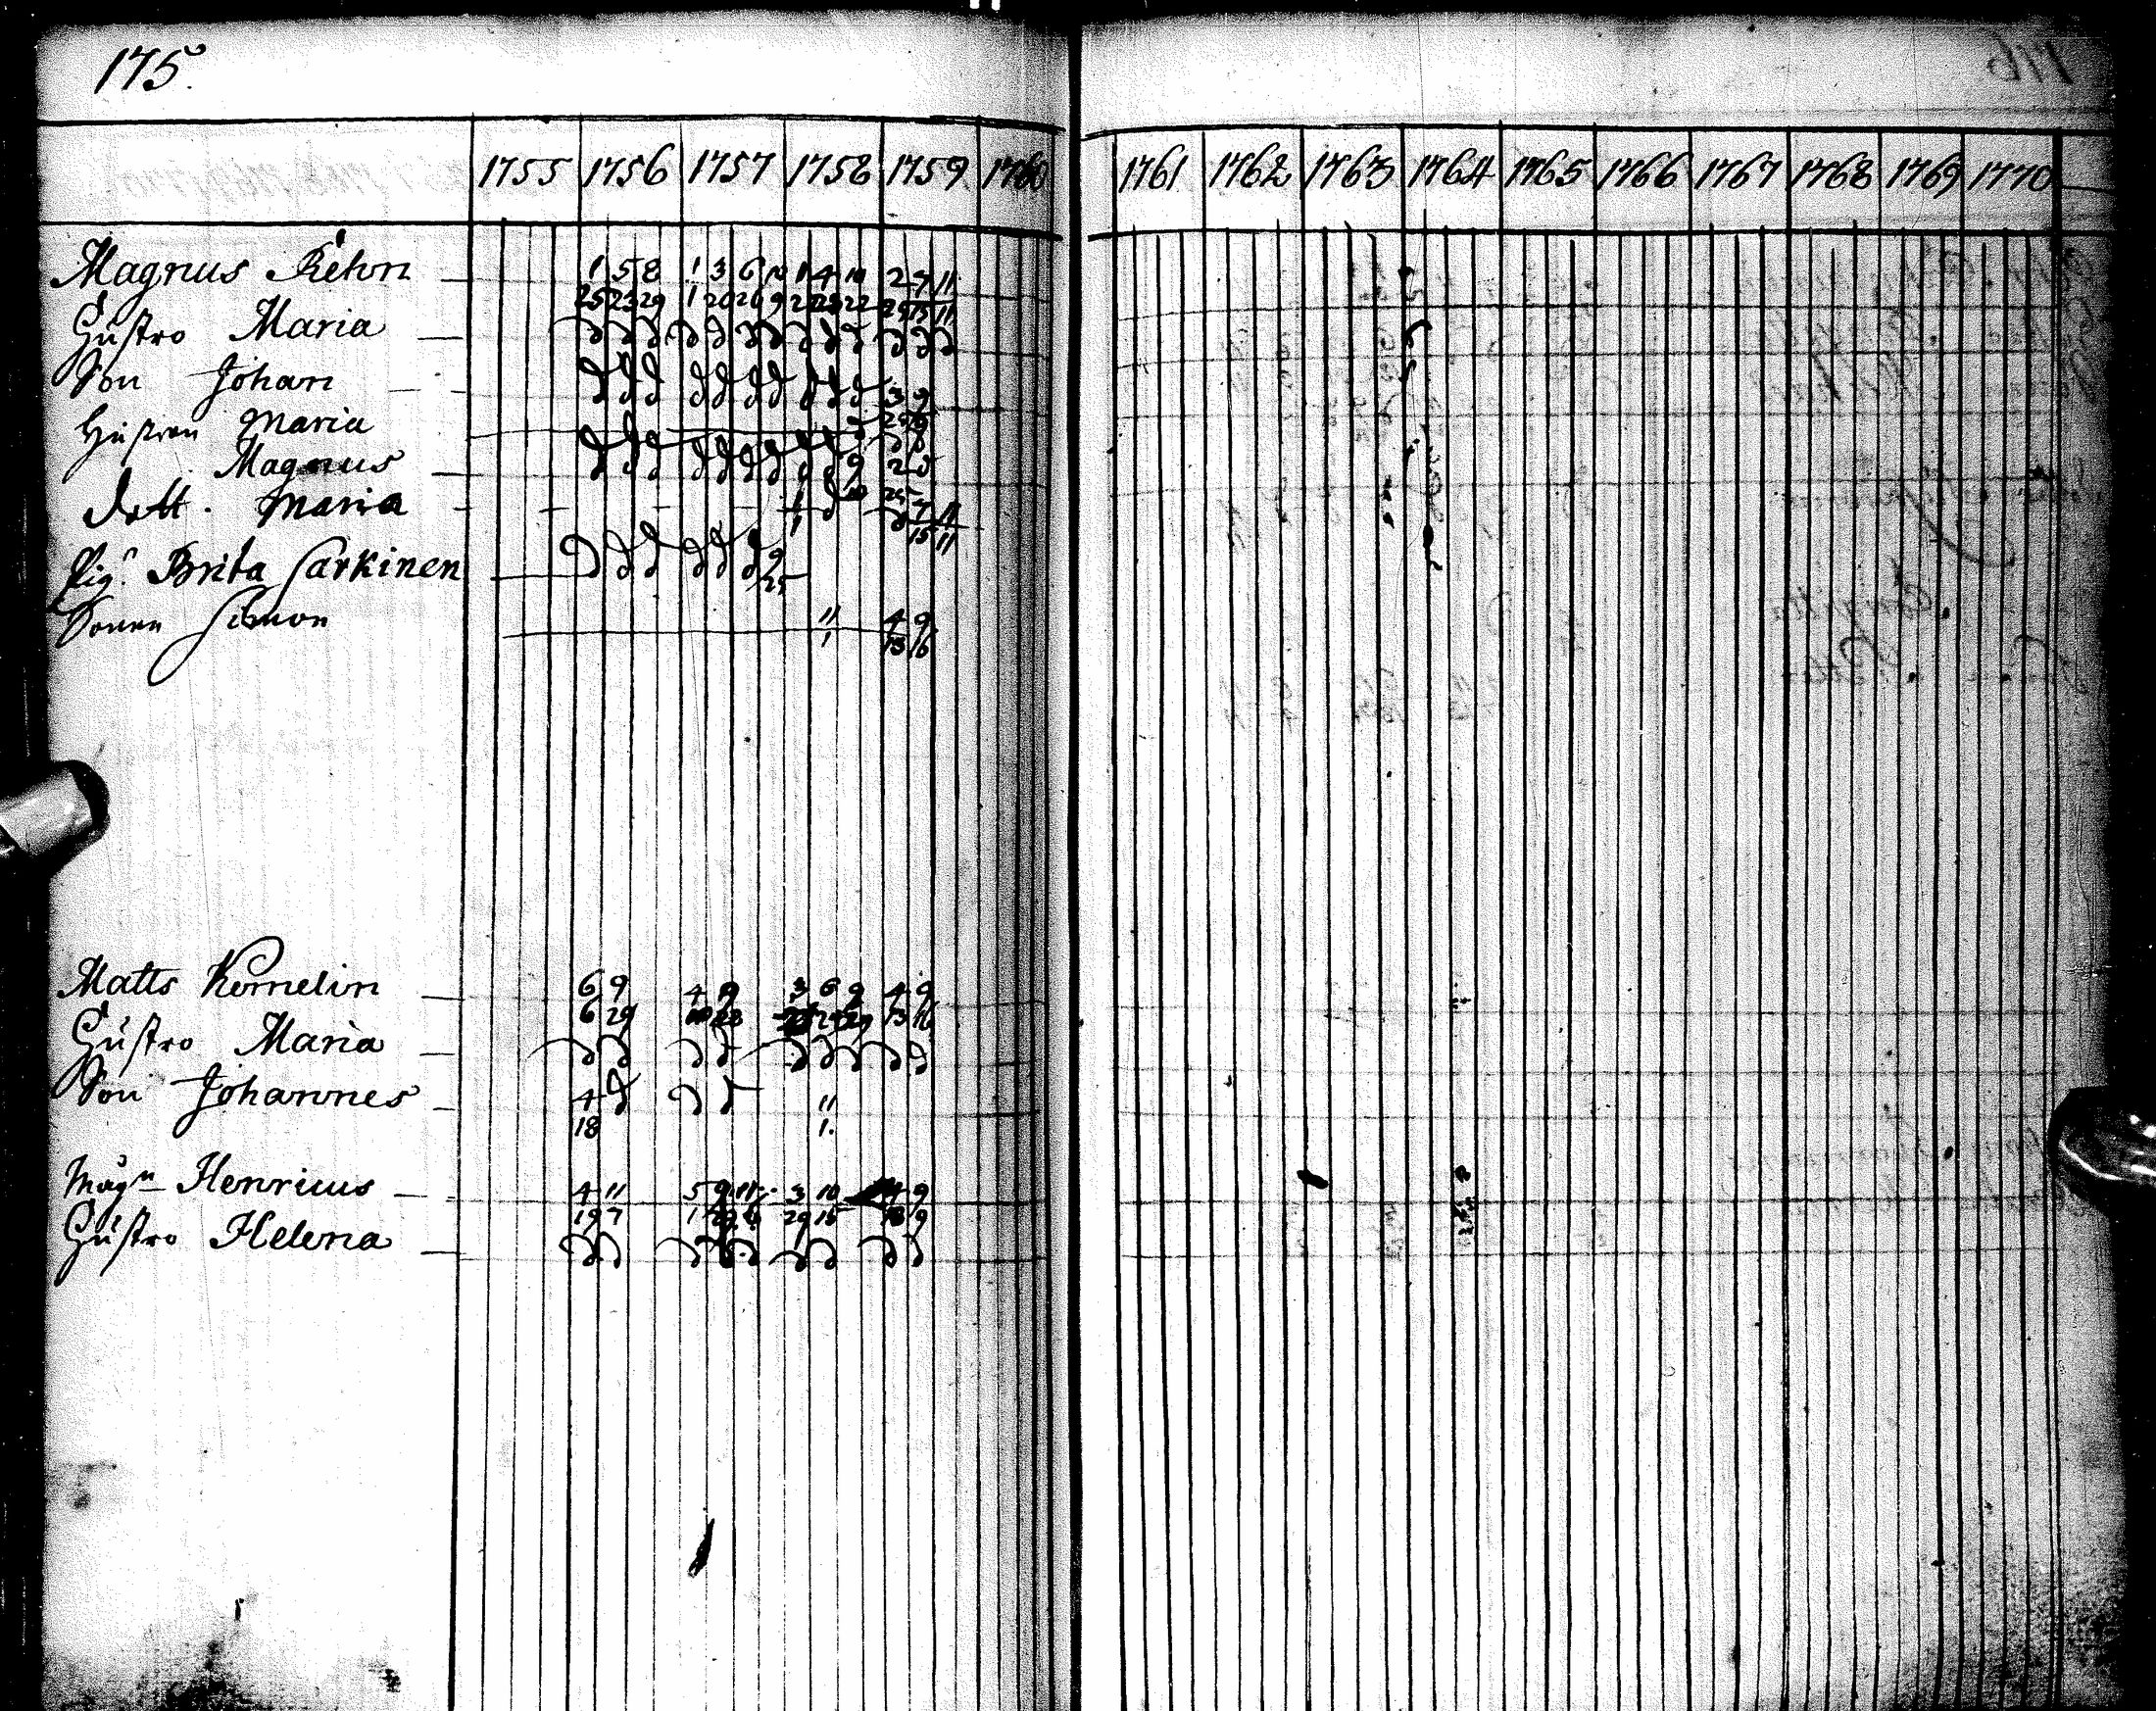 175.
1755 1756 1757 1758 1759 1760 1761 1762 1763 1764 1765 1766 1767 1768 1769 1770
Magnus Rehn 1 5 8 1 3 6 10 1 4 10 2 7 11
25 23 29 1 20 26 9 22 22 25 15 11
Hustro Maria
Son Johan 3 9
Hustron Maria
Magnus 9 2
Dott. Maria 1 7 11
1 15 11
Pig. Brita Sarkinen 9
25
Sonen Simon 11 4 9
1 13 16
Matts Kemelin 6 9 4 9 3 6 9 4 9
6 29 13 16
Hustro Maria
Son Johannes 4 11
18 1.
Mågn Henricus 4 11 5 9 11 3 10 4 9
19 7 1 29 15 9
Hustro Helena